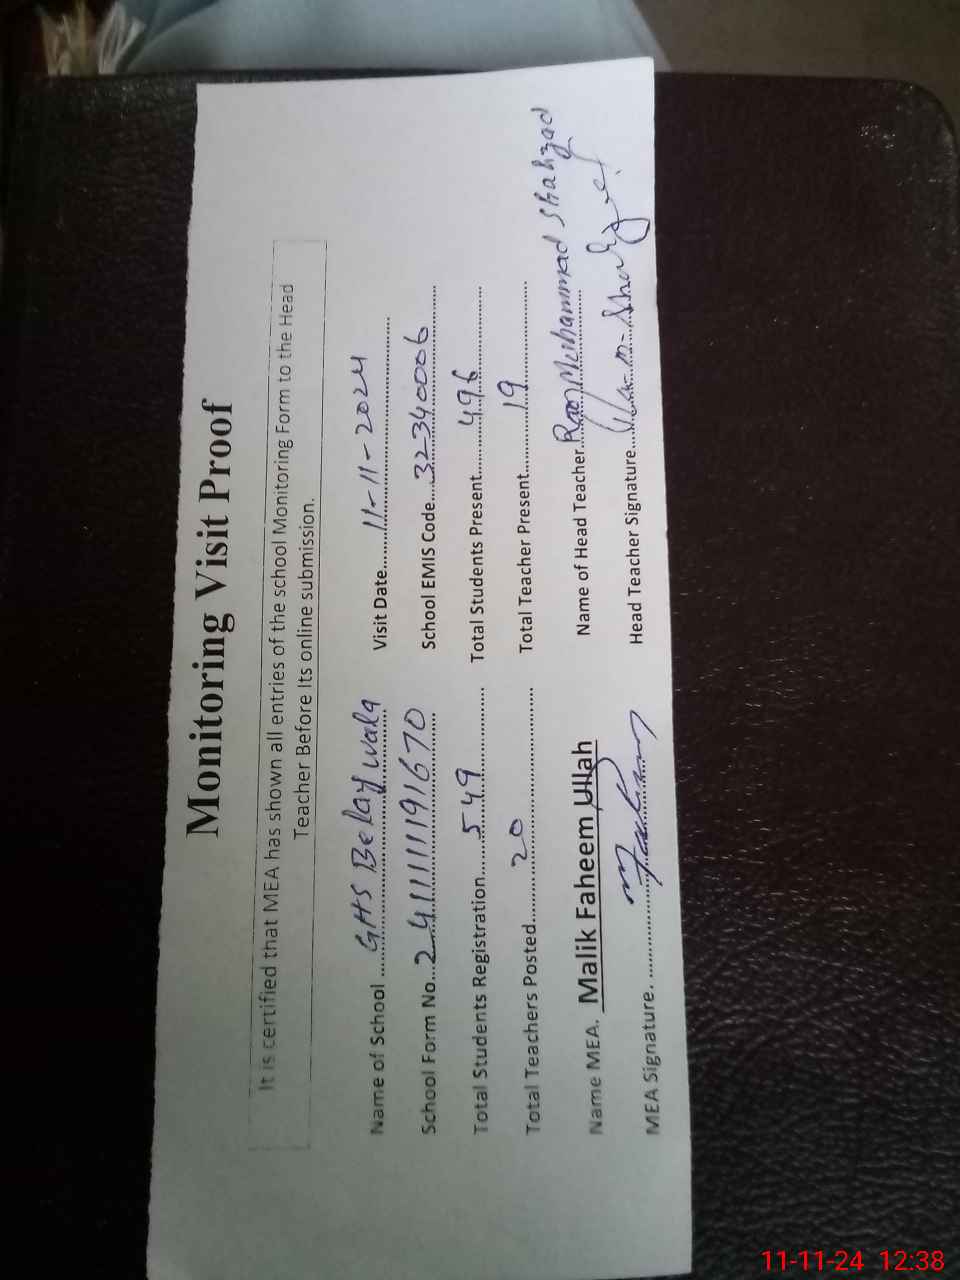 Monitoring Visit Proof
It is certified that MEA has shown all entries of the school Monitoring Form to the Head
Teacher Before Its online submission.
Name of School ....GHS Belay wala Visit Date.....11-11-2024
School Form No...241111191670 School EMIS Code....32340006
Total Students Registration.....549 Total Students Present.....496
Total Teachers Posted.....20 Total Teacher Present.....19
Name MEA. Malik Faheem Ullah Name of Head Teacher..Rao Muhammad Shahzad
MEA Signature. Head Teacher Signature.
11-11-24 12:38